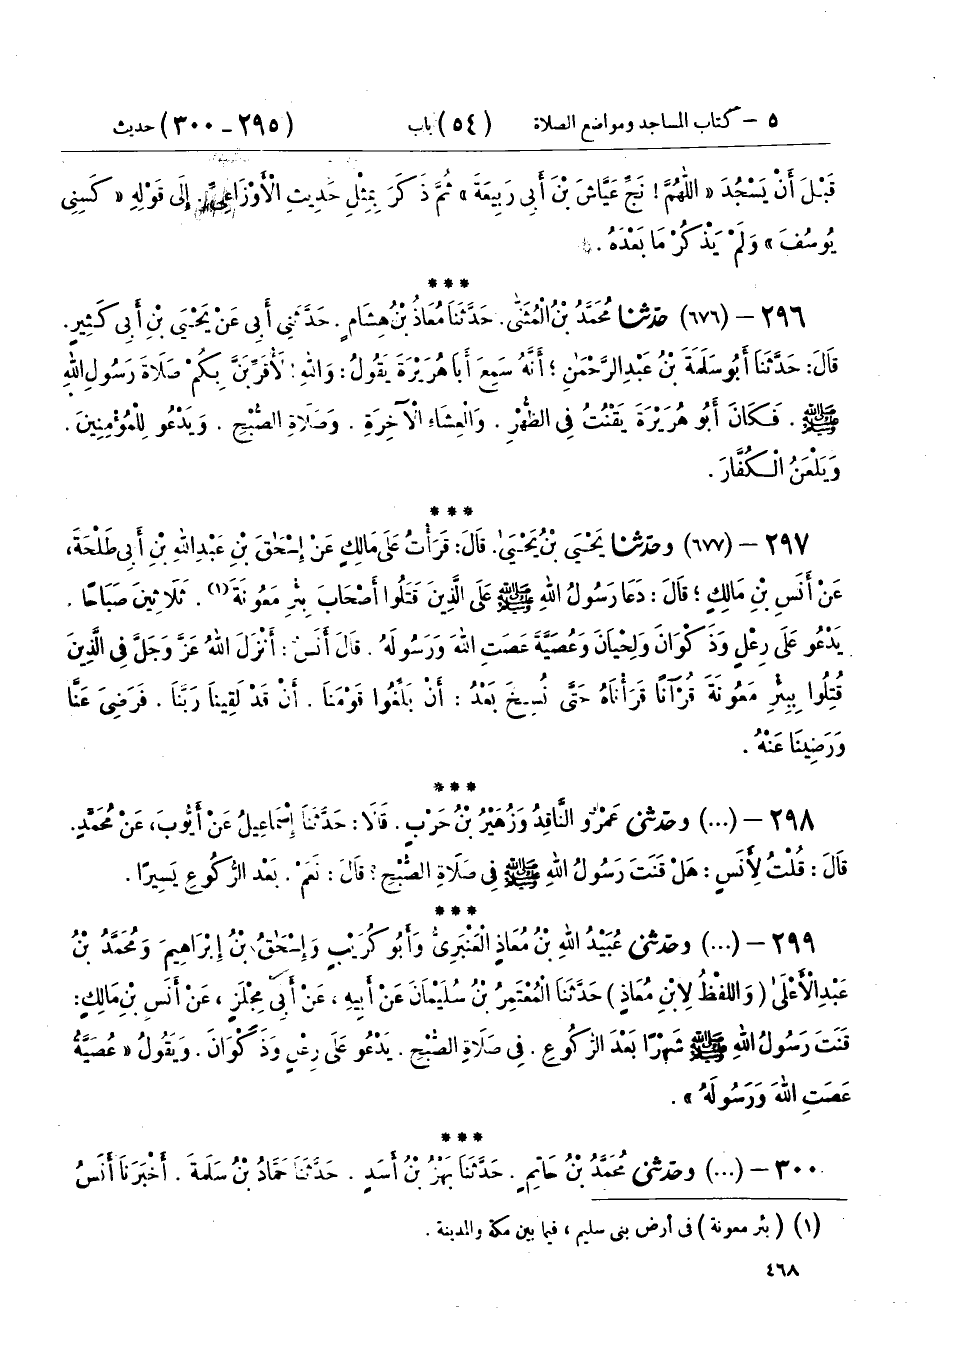 ٥ – كتاب المساجد ومواضع الصلاة (٥٤) باب (٢٩٥ – ٣٠٠) حديث
قَبْلَ أَنْ يَسْجُدَ « اللّٰهُمَّ ! نَجِّ عَيَّاشَ بْنَ أَبِي رَبِيعَةَ » ثُمَّ ذَكَرَ بِمِثْلِ حَدِيثِ الْأَوْزَاعِيِّ. إِلَى قَوْلِهِ « كَسِنِي
يُوسُفَ » وَلَمْ يَذْكُرْ مَا بَعْدَهُ .
***
٢٩٦ – (٦٧٦) حدّثنا مُحَمَّدُ بْنُ الْمُثَنَّى. حَدَّثَنَا مُعَاذُ بْنُ هِشَامٍ . حَدَّثَنِي أَبِي عَنْ يَحْيَى بْنِ أَبِي كَثِيرٍ.
قَالَ: حَدَّثَنَا أَبُو سَلَمَةَ بْنُ عَبْدِ الرَّحْمٰنِ ؛ أَنَّهُ سَمِعَ أَبَا هُرَيْرَةَ يَقُولُ: وَاللهِ! لَأُقَرِّبَنَّ بِكُمْ صَلَاةَ رَسُولِ اللهِ
ﷺ . فَكَانَ أَبُو هُرَيْرَةَ يَقْنُتُ فِي الظُّهْرِ . وَالْعِشَاءِ الْآخِرَةِ . وَصَلَاةِ الصُّبْحِ . وَيَدْعُو لِلْمُؤْمِنِينَ .
وَيَلْعَنُ الْكُفَّارَ .
***
٢٩٧ – (٦٧٧) وحدّثنا يَحْيَى بْنُ يَحْيَى. قَالَ: قَرَأْتُ عَلَى مَالِكٍ عَنْ إِسْحٰقَ بْنِ عَبْدِ اللهِ بْنِ أَبِي طَلْحَةَ،
عَنْ أَنَسِ بْنِ مَالِكٍ ؛ قَالَ : دَعَا رَسُولُ اللهِ ﷺ عَلَى الَّذِينَ قَتَلُوا أَصْحَابَ بِئْرِ مَعُونَةَ(١) . ثَلَاثِينَ صَبَاحًا .
يَدْعُو عَلَى رِعْلٍ وَذَكْوَانَ وَلِحْيَانَ وَعُصَيَّةَ عَصَتِ اللهَ وَرَسُولَهُ . قَالَ أَنَسٌ : أَنْزَلَ اللهُ عَزَّ وَجَلَّ فِي الَّذِينَ
قُتِلُوا بِبِئْرِ مَعُونَةَ قُرْآنًا قَرَأْنَاهُ حَتَّى نُسِخَ بَعْدُ : أَنْ بَلِّغُوا قَوْمَنَا . أَنْ قَدْ لَقِينَا رَبَّنَا . فَرَضِيَ عَنَّا
وَرَضِينَا عَنْهُ .
***
٢٩٨ – (...) وحدّثني عَمْرٌو النَّاقِدُ وَزُهَيْرُ بْنُ حَرْبٍ . قَالَا: حَدَّثَنَا إِسْمَاعِيلُ عَنْ أَيُّوبَ، عَنْ مُحَمَّدٍ.
قَالَ : قُلْتُ لِأَنَسٍ : هَلْ قَنَتَ رَسُولُ اللهِ ﷺ فِي صَلَاةِ الصُّبْحِ ؟ قَالَ : نَعَمْ . بَعْدَ الرُّكُوعِ يَسِيرًا .
***
٢٩٩ – (...) وحدّثني عُبَيْدُ اللهِ بْنُ مُعَاذٍ الْعَنْبَرِيُّ وَأَبُو كُرَيْبٍ وَإِسْحٰقُ بْنُ إِبْرَاهِيمَ وَمُحَمَّدُ بْنُ
عَبْدِ الْأَعْلَى ( وَاللَّفْظُ لِابْنِ مُعَاذٍ ) حَدَّثَنَا الْمُعْتَمِرُ بْنُ سُلَيْمَانَ عَنْ أَبِيهِ ، عَنْ أَبِي مِجْلَزٍ ، عَنْ أَنَسِ بْنِ مَالِكٍ:
قَنَتَ رَسُولُ اللهِ ﷺ شَهْرًا بَعْدَ الرُّكُوعِ . فِي صَلَاةِ الصُّبْحِ . يَدْعُو عَلَى رِعْلٍ وَذَكْوَانَ . وَيَقُولُ « عُصَيَّةُ
عَصَتِ اللهَ وَرَسُولَهُ » .
***
٣٠٠ – (...) وحدّثني مُحَمَّدُ بْنُ حَاتِمٍ . حَدَّثَنَا بَهْزُ بْنُ أَسَدٍ . حَدَّثَنَا حَمَّادُ بْنُ سَلَمَةَ . أَخْبَرَنَا أَنَسُ
(١) ( بئر معونة ) فى أرض بنى سليم ، فيما بين مكة والمدينة .
٤٦٨